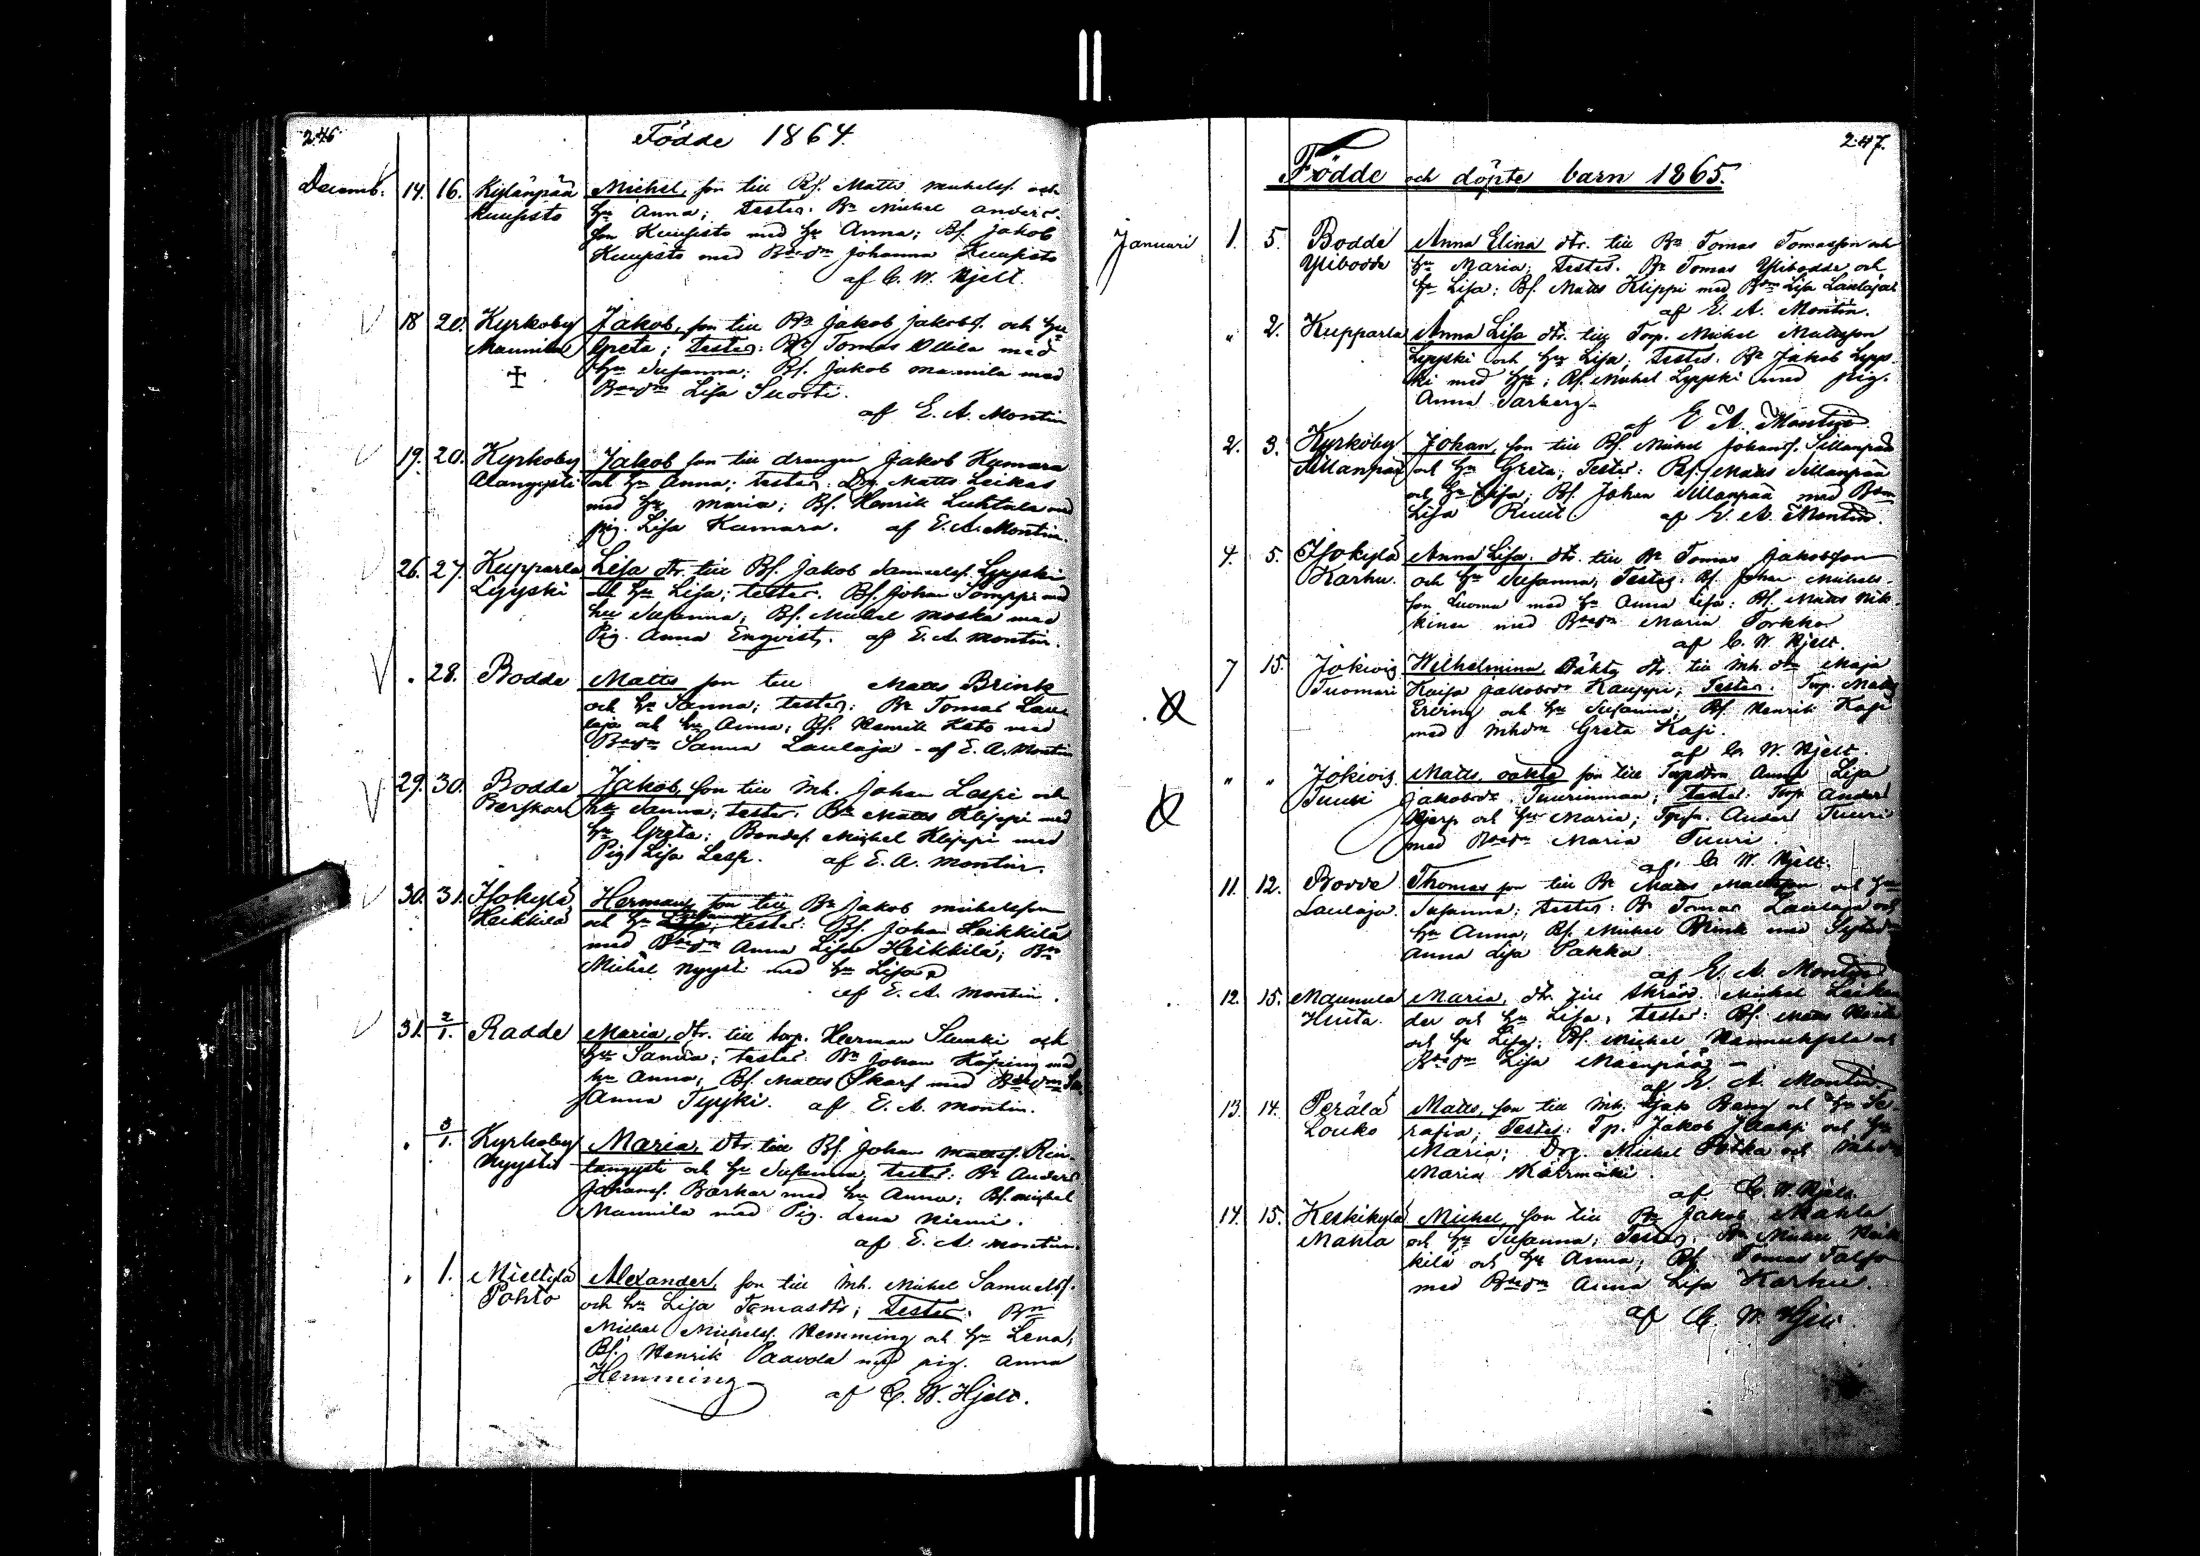 246
Födde 1864.
Decemb. 14. 16. Kylänpää Michel, son till Bf. Matts Michelsf. och
Kuusisto hu Anna; testes. Bn Michel Anders-
son Kuusisto med hu Anna; Bf. Jakob
Kuusisto med Bondm Johanna Kuusisto
af C. W. Hjelt.
18 20. Kyrkoby Jakob, son till Bn Jakob Jakobs. och hu
Mannila Greta; testes: Bn Tomas Ollila med
hu Susanna; Bf. Jakob Mannila med
Bondm Lisa Suorti.
af E. A. Montin
19. 20. Kyrkoby Jakob son till drengen Jakob Kamara
Alangysti och hu Anna; testes. Drg Matts Leikas
med hu Maria; Bf. Henrik Luhtala med
pig. Lisa Kamara. af E. A. Montin.
26. 27. Kupparla Lisa dtr. till Bf. Jakob Samuelsf. Lyyski
Lyyski och hu Lisa; testes. Bf. Johan Pomppi med
hu Susanna; Bf. Michel Moska med
Pig. Anna Enqvist. af E. A. Montin.
" 28. Bodde Matts son till Matts Brink
och hu Sanna; testes: Bn Tomas Lau-
laja och hu Anna; Bf. Henrik Kato med
Bondm Sanna Laulaja - af E. A. Montin
29. 30. Bodde Jakob, son till Inh. Johan Laspi och
hu Sanna; testes: Bn Matts Klippi med
hu Greta; Bondes. Michel Klippi med
Pig Lisa Lasp. af E. A. Montin.
30. 31. Isokylä Herman son till Bn Jakob Michelsson
Heikkilä och hu Susanna; testes: Bf. Johan Heikkilä
med Bondm Anna Lisa Heikkilä; Bn
Michel Nyysti med hu Lisa
af E. A. Montin.
31. 2/1. Radde Maria, dtr. till torp. Herman Slunki och
hu Sanna; testes Bn Johan Köping med
hu Anna, Bf. Matts Skarf med
Anna Tyyki. af E. A. Montin.
" 3/1. Kyrkoby Maria, dtr. till Bf. Johan Mattsf. Rin-
Nyysti tangysti och hu Susanna; testes: Bn Anders
Johansf. Barkar med hu Anna; Bf. Michel
Mannila med Pig. Lena Niemi.
af E. A. Montin.
" 1. Miettylä Alexander, son till Inh. Michel Samuelsf.
Pohto och hu Lisa Tomasdtr; Testes: Bn
Michel Michelsf. Hemming och hu Lena;
Bf. Henrik Paavola med pig. Anna
Hemming
af C. W. Hjelt.
247.
Födde och döpte barn 1865.
Januari 1. 5. Bodde Anna Elina dtr. till Bn Tomas Tomasson och
Ylibodde hu Maria; testes. Bn Tomas Ylibodde och
hu Lisa; Bf. Matts Klippi med Bdm Lisa Laulaja
af E. A. Montin.
" 2. Kupparla Anna Lisa dtr. till Torp. Michel Mattsson
Lyyski och hu Lisa; testes. Bn Jakob Lyys-
ki med hu; Bf. Michel Lyyski med pig.
Anna Sarberg-
af E. A. Montin.
2. 3. Kyrkoby Johan, son till Bf. Michel Johansf. Sillanpää
Sillanpää och hu Greta; Testes: Bf. Matts Sillanpää
och hu Lisa; Bf. Johan Sillanpää med Bdm
Lisa Ruut af E. A. Montin.
4. 5. Isokylä Anna Lisa. dtr. till Bn Tomas Jakobsson
Karhu. och hu Susanna; Testes: Bf. Johan Michels-
son Luoma med hu Anna Lisa; Bf. Matts Nik-
kinen med Bondm Maria Torkko
af C. W. Hjelt.
7 15. Jokivig Wilhelmina, oäkta dtr. till Inh. dtr Maja
Tuomari Kaisa Jakobsdr Kauppi; Testes: Torp. Matts
Erving och hu Susanna; Bf. Henrik Kasi
med Inhdm Greta Kasi.
af C. W. Hjelt.
" " Jokivig Matts, oäkta son till Torpdtrn Anna Lisa
Tuuri Jakobsdr. Tuurinmaa; testes: Torp. Anders
och hu Maria; Tpsn. Anders Tuuri
med Bondm Maria Tuuri.
af C. W. Hjelt.
11. 12. Bodde Thomas son till Bn Matts Mattsson och hu
Laulaja. Susanna; testes: Bn Tomas Laulaja och
hu Anna; Bf. Michel Brink med
Anna Lisa Pakka.
af E. A. Montin
12. 15. Maunula Maria, dtr. till Skräd. Michel
Huita. och hu Lisa; testes: Bf. Matts
och hu Lisa; Bf. Michel och
Bondm Lisa Mäenpää -
af E. A. Montin.
13. 14. Perälä Matts, son till Inh. och hu Se-
Louko rafia; Testes: Tp. Jakob och hu
Maria; Drg. Michel Potka och
Maria Karrmäki.
af C. W. Hjelt
14. 15. Keskikylä Michel, son till Bn Jakob Mahla
Mahla och hu Susanna; Testes: Bn Michel Heik-
kilä och hu Anna; Bf. Tomas
med Bondm Anna Lisa Karhu.
af C. W. Hjelt.